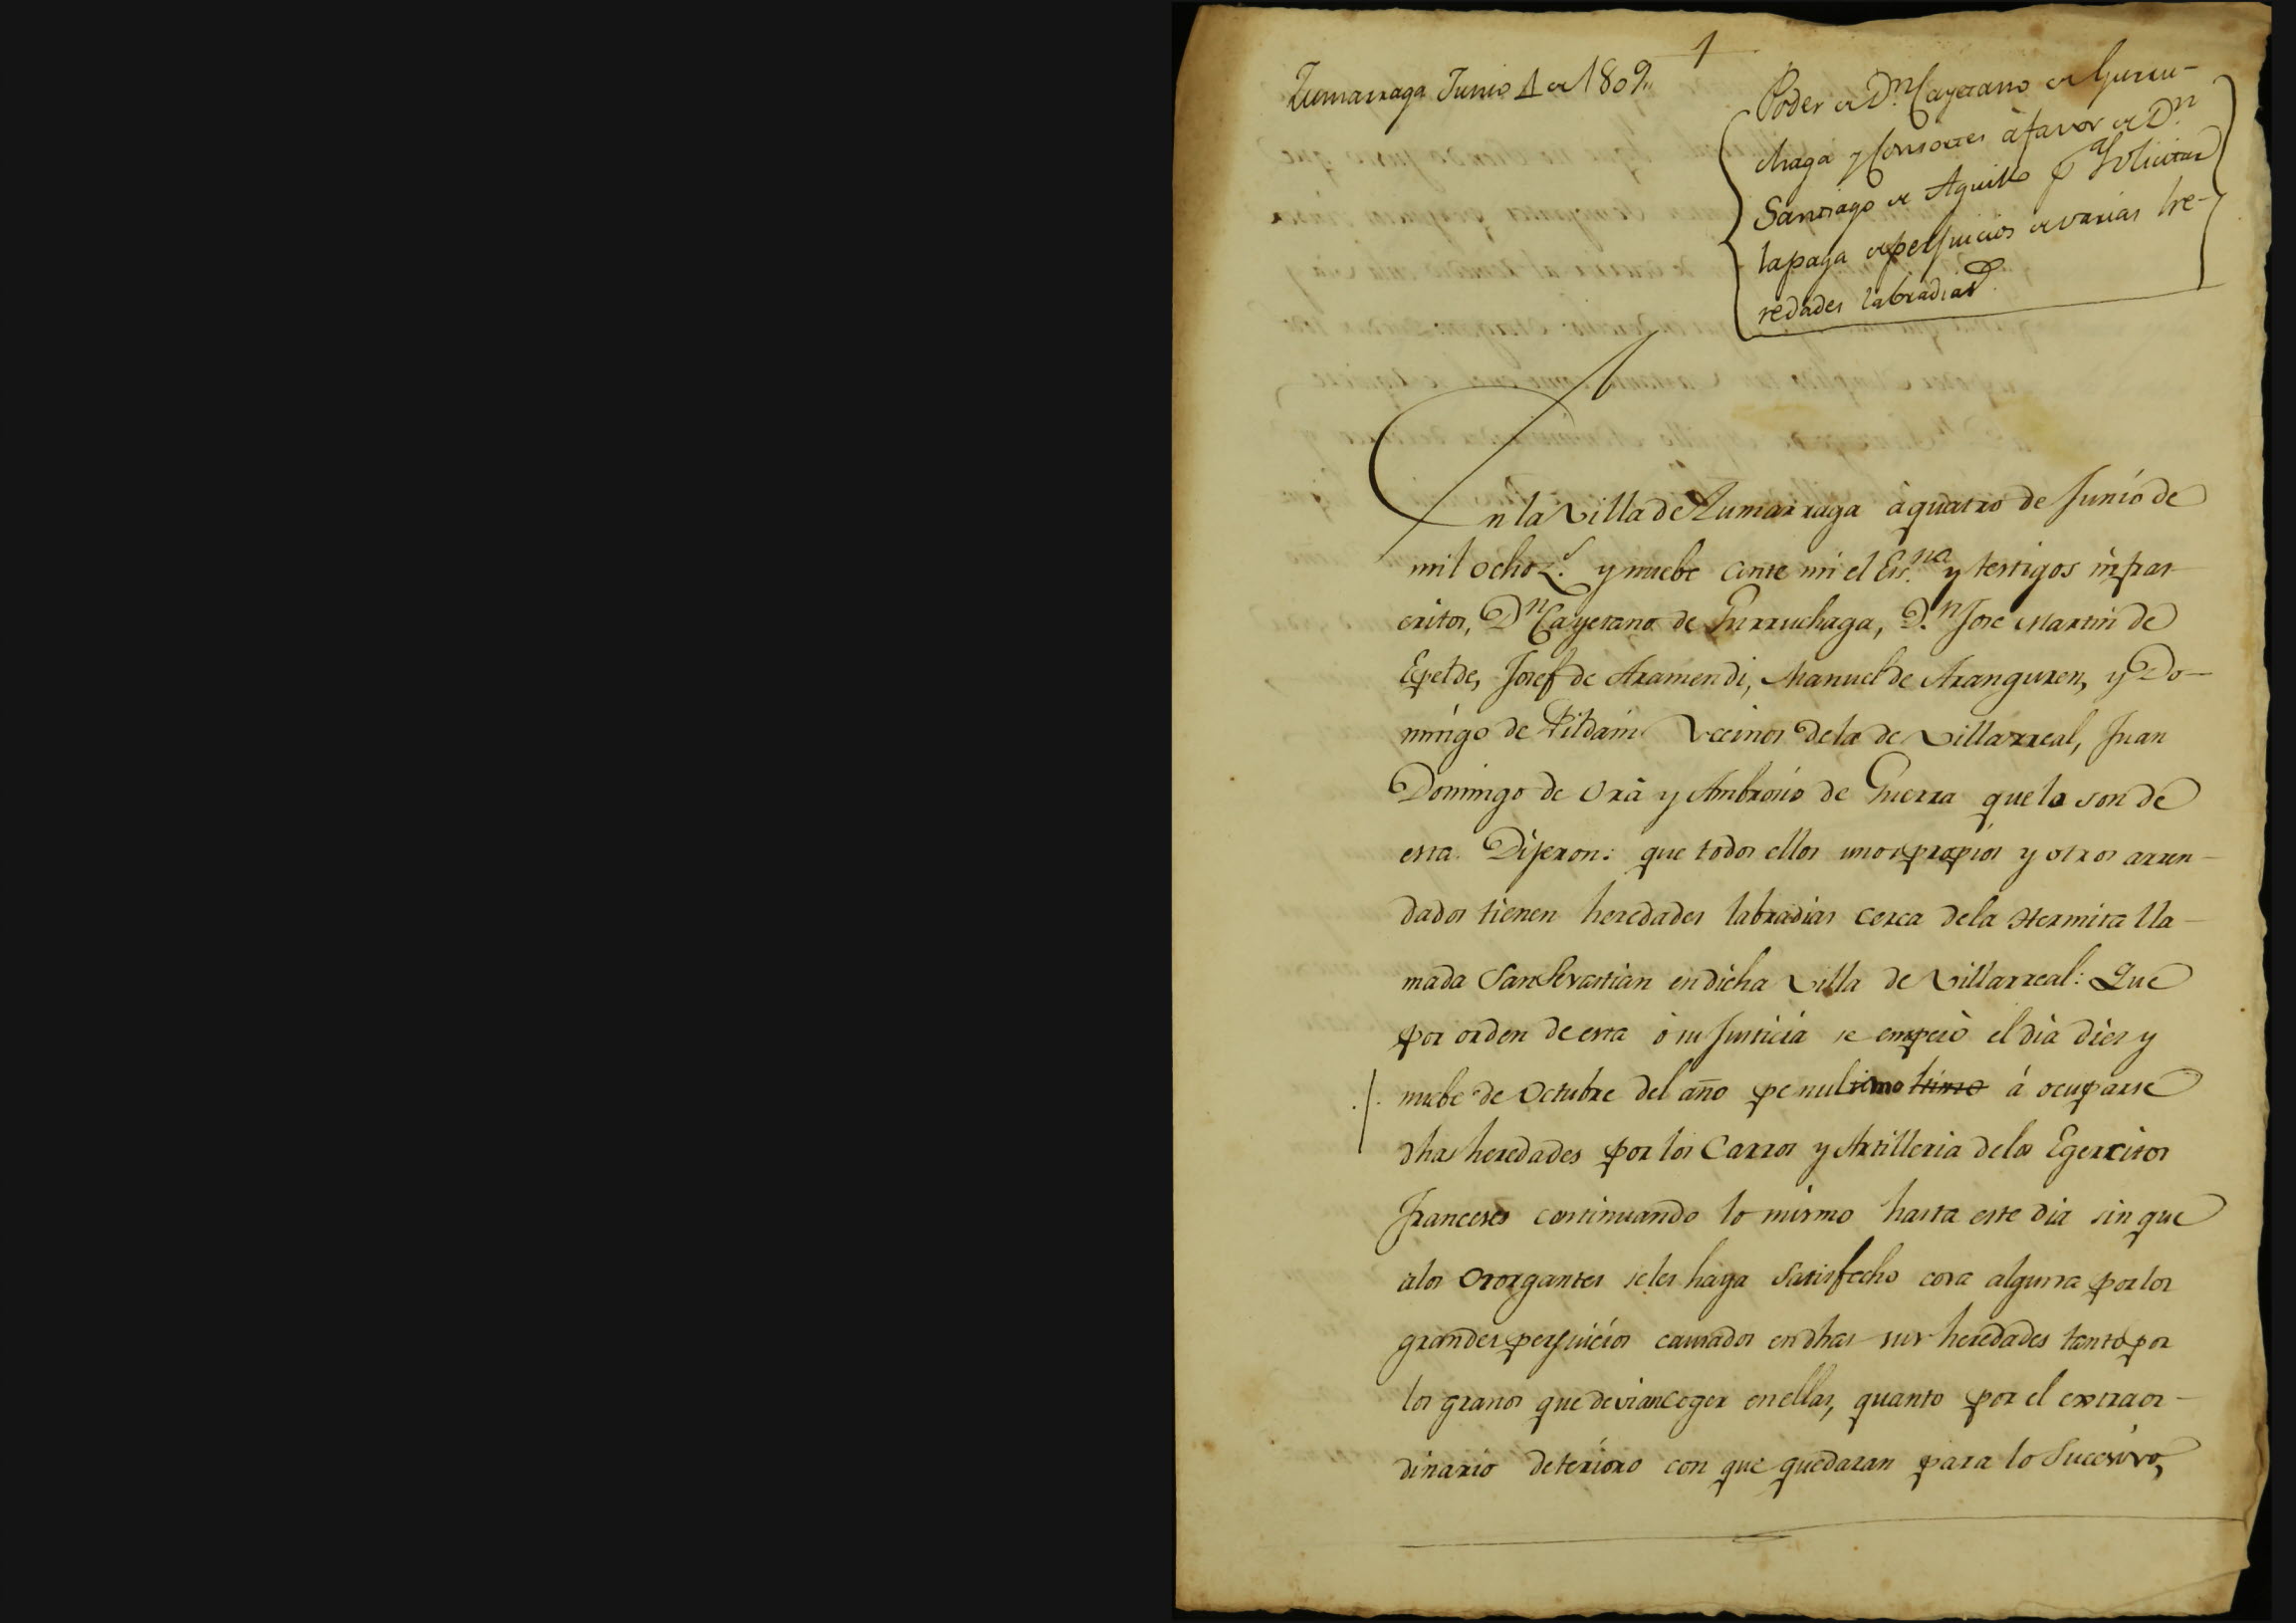 1
Zumarraga Junio 4 de 1809,,
Poder de Dn. Cayetano de Gurru-
chaga y Consortes à favor de Dn.
Santiago de Aguillo pa. Solicitar
la paga de perjuicios de varias he-
redades labradias.
En la Villa de Zumarraga à quatro de Junio de
mil ochoz.s y nuebe ante mi el Es.no y testigos infras-
critos, Dn. Cayetano de Gurruchaga, D.n Jose Martin de
Epelde, Josef de Aramendi, Manuel de Aranguren, y Do-
mingo de Pildain Vecinos dela de Villarreal, Juan
Domingo de Ora y Ambrosio de Guerra que lo son de
esta. Dijeron: que todos ellos unos propios y otros arren-
dados tienen heredades labradias cerca dela Hermita lla-
mada San Sevastian en dicha Villa de Villarreal: Que
por orden de esta ò su Justicia se empezò el dia dies y
nuebe de Octubre del año penultimo á ocuparse
dhas heredades por los Carros y Artilleria delos Egercitos
Franceses continuando lo mismo hasta este dia sin que
alos Otorgantes se les haya Satisfecho cosa alguna por los
grandes perjuicios causados en dhas sus heredades tanto por
los granos que devian coger en ellas, quanto por el extraor-
dinario deterioro con que quedaran para lo Sucesivo,